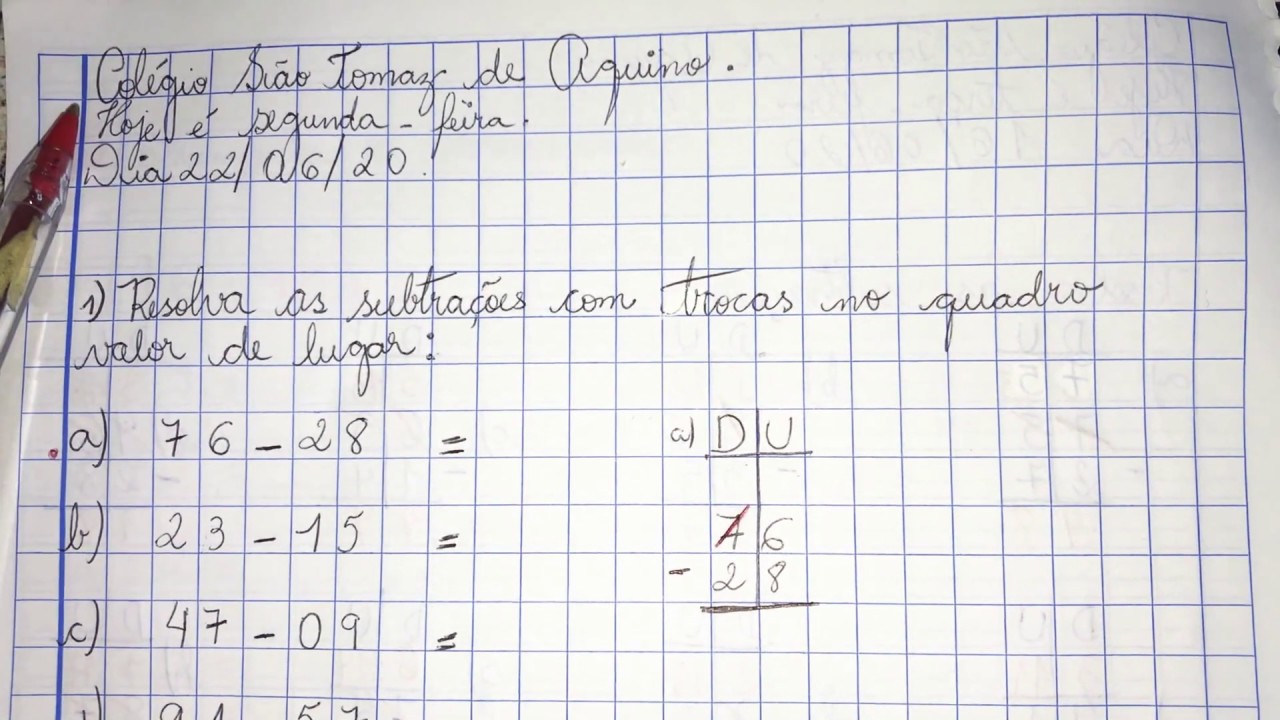 Colégio São Tomaz de Aquino.
Hoje é segunda-feira.
Dia 22/06/20.
1) Resolva as subtrações com trocas no quadro
valor de lugar:
a) 76 - 28 =
b) 23 - 15 =
c) 47 - 09 =
a) D U
7 6
- 2 8